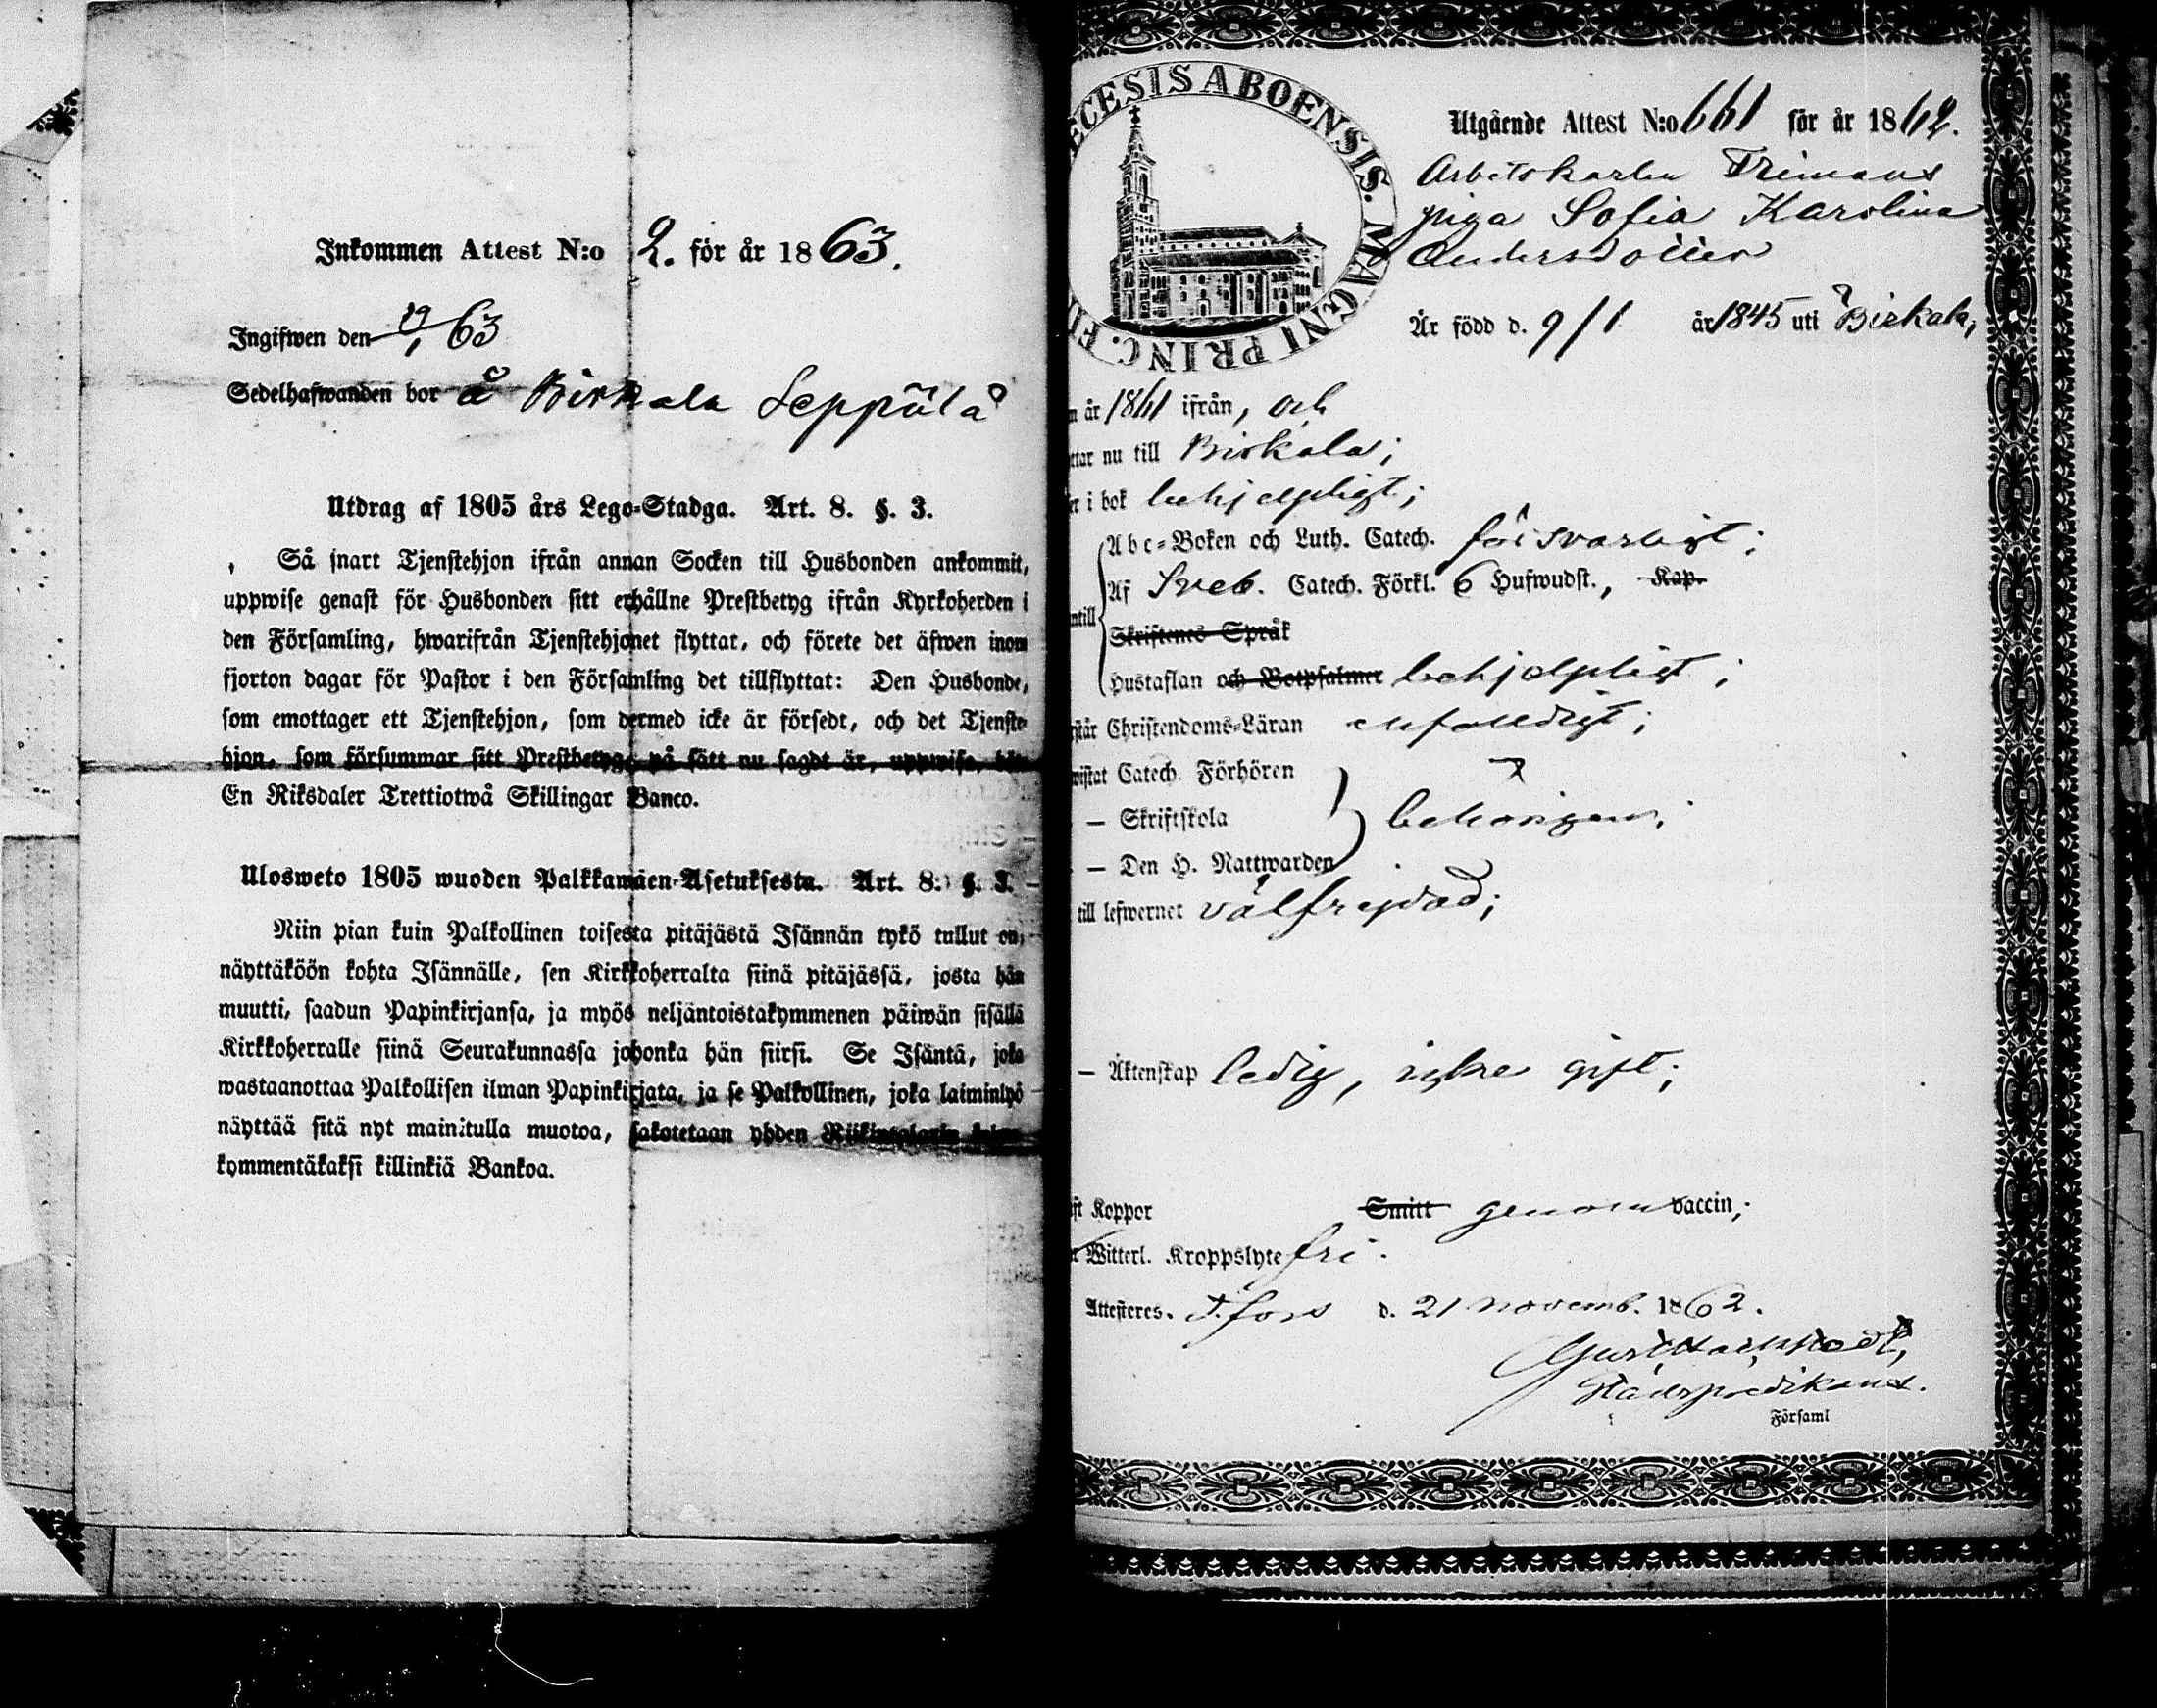 Inkommen Attest N:o 2. för år 1863.
Ingifwen den 19/1 63
Sedelhafwanden bor å Birkala Seppälä
Utdrag af 1805 års Lego-Stadga. Art. 8. §. 3.
Så snart Tjenstehjon ifrån annan Socken till Husbonden ankommit,
uppwise genast för Husbonden sitt erhållne Prestbetyg ifrån Kyrkoherden i
den Församling, hwarifrån Tjenstehjonet flyttat, och förete det äfwen inom
fjorton dagar för Pastor i den Församling det tillflyttat: Den Husbonde,
som emottager ett Tjenstehjon, som dermed icke är försedt, och det Tjenste-
hjon, som försummar sitt Prestbetyg, på sätt nu sagdt är, uppwisa,
En Riksdaler Trettiotwå Skillingar Banco.
Ulosweto 1805 wuoden Palkkawäen-Asetuksesta. Art. 8: §. 3.
Niin pian kuin Palkollinen toisesta pitäjästä Isännän tykö tullut on,
näyttäköön kohta Isännälle, sen Kirkkoherralta siinä pitäjässä, josta hän
muutti, saadun Papinkirjansa, ja myös neljäntoistakymmenen päiwän sisällä
Kirkkoherralle siinä Seurakunnassa johonka hän siirsi. Se Isäntä, joka
wastaanottaa Palkollisen ilman Papinkirjata, ja se Palkollinen, joka laiminlyö
näyttää sitä nyt mainitulla muotoa, sakotetaan yhden Riikintalarin
kymmentäkaksi killinkiä Bankoa.
ECESIS ABOENSIS. MAGNI PRINC. FI
Utgående Attest N:o 661 för år 1862.
Arbetskarlen Trimans
piga Sofia Karolina
Andersdotter
Är född d. 9/1 år 1845 uti Birkala,
n år 1861 ifrån, och
ttar nu till Birkala;
er i bok behjelpligt;
Abc-Boken och Luth. Catech. försvarligt;
Af Sveb. Catech. Förkl. 6 Hufwudst., Kap.
ntill
Skriftenes Språk
Hustaflan och Botpsalmer behjelpligt;
rstår Christendoms-Läran enfalldigt;
wistat Catech. Förhören
— Skriftskola behörigen;
— Den H. Nattwarden
till lefwernet välfrejdad;
— Äktenskap ledig, icke gift;
ft Koppor Smitt genom vaccin;
Witterl. Kroppslyte fri.
Attesteres. T.fors d. 21 novemb. 1862.
Stadspredikant.
Församl